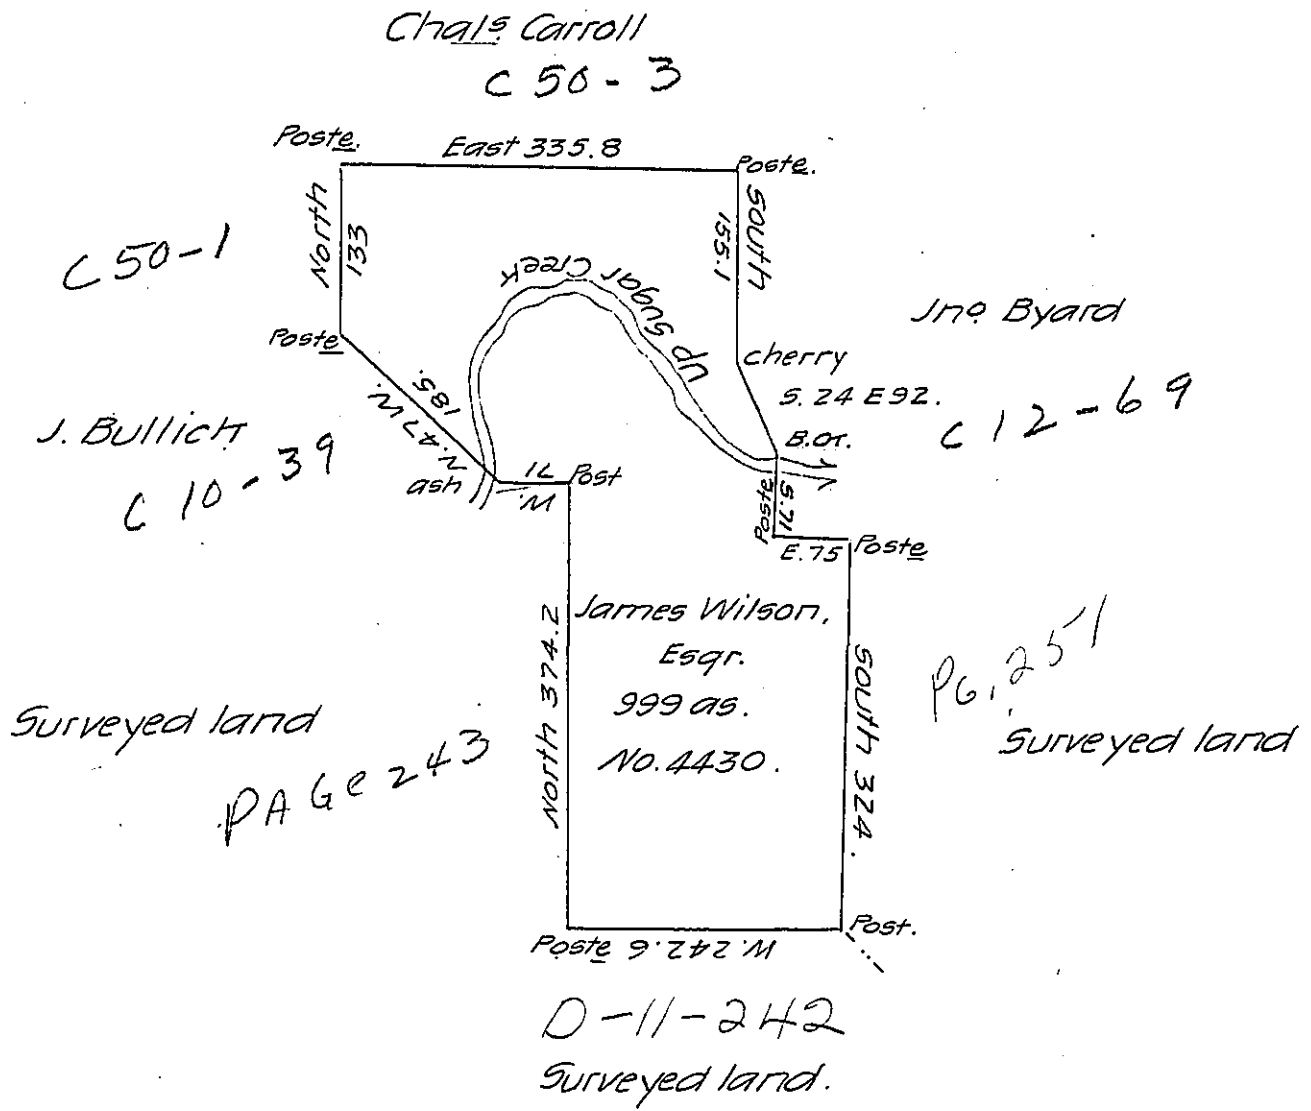 Chals. Carroll
C 50-3
Poste.
East 335.8
Poste.
North
133
South
155.1
C 50-1
Up Sugar Creek
Jno. Byard
Poste
cherry
S. 24 E 92.
C 12-69
185.
N. 47 W.
J. Bullich
C 10-39
B.or.
ash
71
W.
Post
S. 71
Poste
E. 75
Poste
James Wilson,
Esqr.
999 as.
No. 4430.
North 374.2
South 324.
PG. 251
Surveyed land
Surveyed land
PAGe 243
Poste
W. 242.6
Post.
D-11-242
Surveyed land.